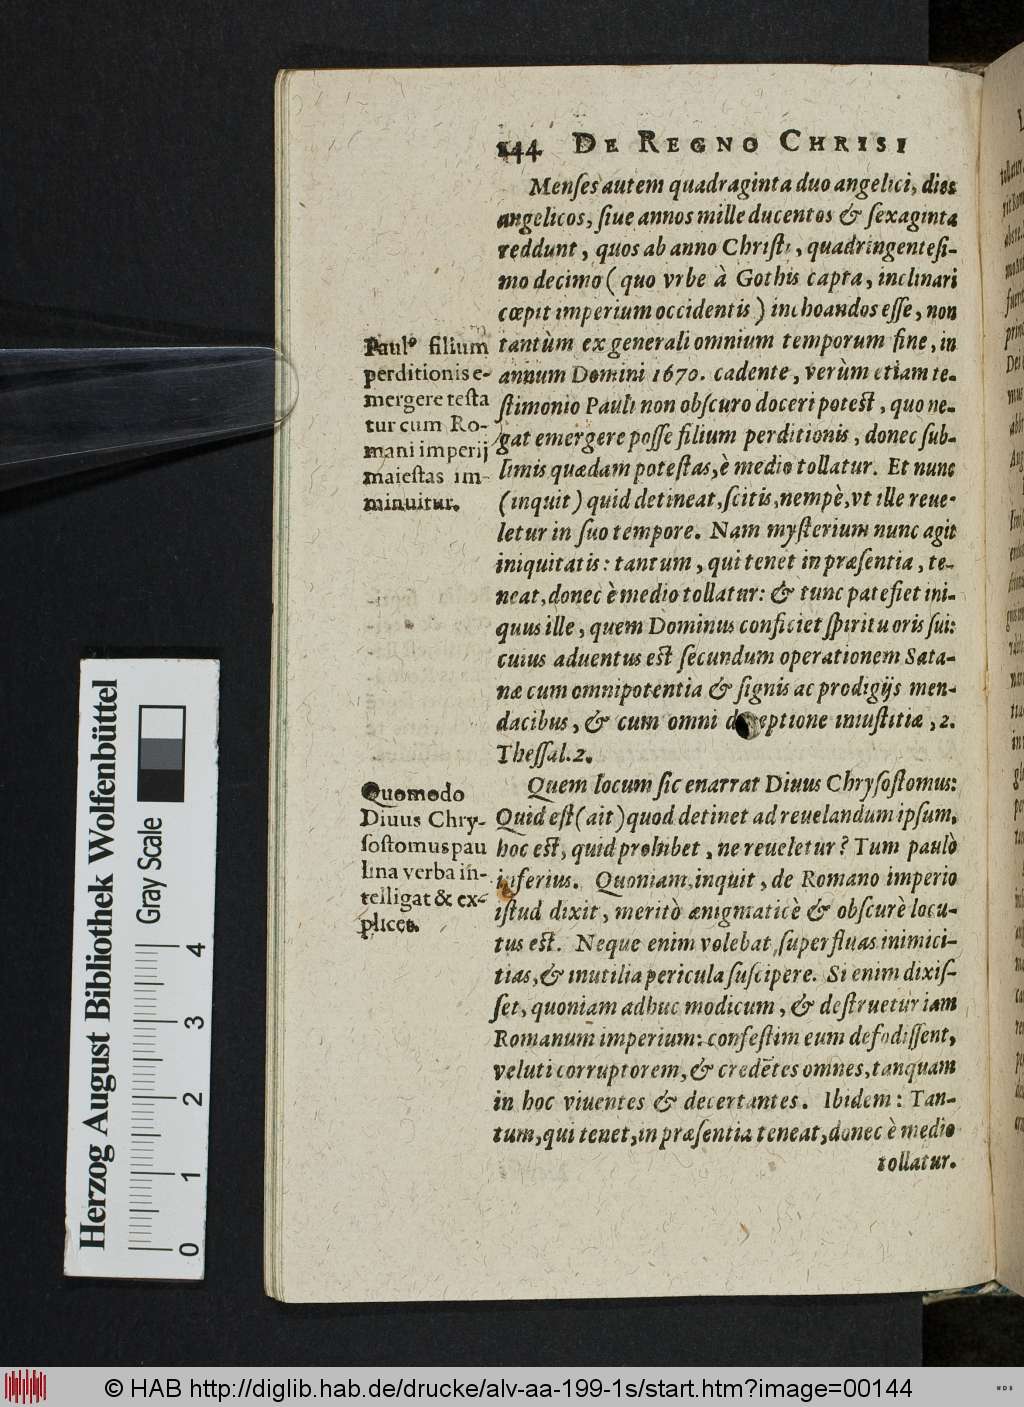 144 DE REGNO CHRISI
Menſes autem quadraginta duo angelici, dies
angelicos, ſiue annos mille ducentos & ſexaginta
reddunt, quos ab anno Chriſti, quadringenteſi-
mo decimo (quo vrbe à Gothis capta, inclinari
cœpit imperium occidentis) inchoandos eſſe, non
tantùm ex generali omnium temporum fine, in
annum Domini 1670. cadente, verùm etiam te-
ſtimonio Pauli non obſcuro doceri poteſt, quo ne-
gat emergere poſſe filium perditionis, donec ſub-
limis quædam poteſtas, è medio tollatur. Et nunc
(inquit) quid detineat, ſcitis, nempè, vt ille reue-
letur in ſuo tempore. Nam myſterium nunc agit
iniquitatis: tantum, qui tenet in præſentia, te-
neat, donec è medio tollatur: & tunc patefiet ini-
quus ille, quem Dominus conficiet ſpiritu oris ſui:
cuius aduentus eſt ſecundum operationem Sata-
næ cum omnipotentia & ſignis ac prodigijs men-
dacibus, & cum omni deceptione iniuſtitiæ, 2.
Theſſal. 2.
Paul⁹ filium
perditionis e-
mergere teſta
tur cum Ro-
mani imperij
maieſtas im-
minuitur.
Quem locum ſic enarrat Diuus Chryſoſtomus:
Quid eſt (ait) quod detinet ad reuelandum ipſum,
hoc eſt, quid prohibet, ne reueletur? Tum paulò
inferius. Quoniam, inquit, de Romano imperio
iſtud dixit, meritò ænigmaticè & obſcurè locu-
tus eſt. Neque enim volebat ſuperfluas inimici-
tias, & inutilia pericula ſuſcipere. Si enim dixiſ-
ſet, quoniam adhuc modicum, & deſtruetur iam
Romanum imperium: confeſtim eum defodiſſent,
veluti corruptorem, & credẽtes omnes, tanquam
in hoc viuentes & decertantes. Ibidem: Tan-
tum, qui tenet, in præſentia teneat, donec è medio
tollatur.
Quomodo
Diuus Chry-
ſoſtomus pau
lina verba in-
telligat & ex-
plicet.
Herzog August Bibliothek Wolfenbüttel
Gray Scale
0 1 2 3 4
© HAB http://diglib.hab.de/drucke/alv-aa-199-1s/start.htm?image=00144